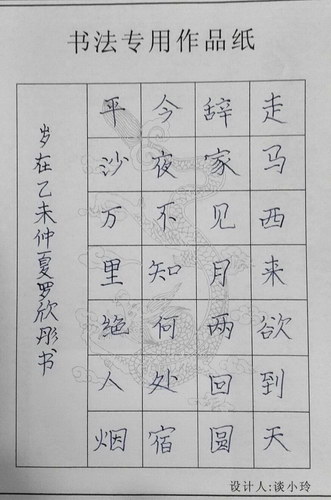 书法专用作品纸
走马西来欲到天
辞家见月两回圆
今夜不知何处宿
平沙万里绝人烟
岁在乙未仲夏罗欣彤书
设计人:谈小玲